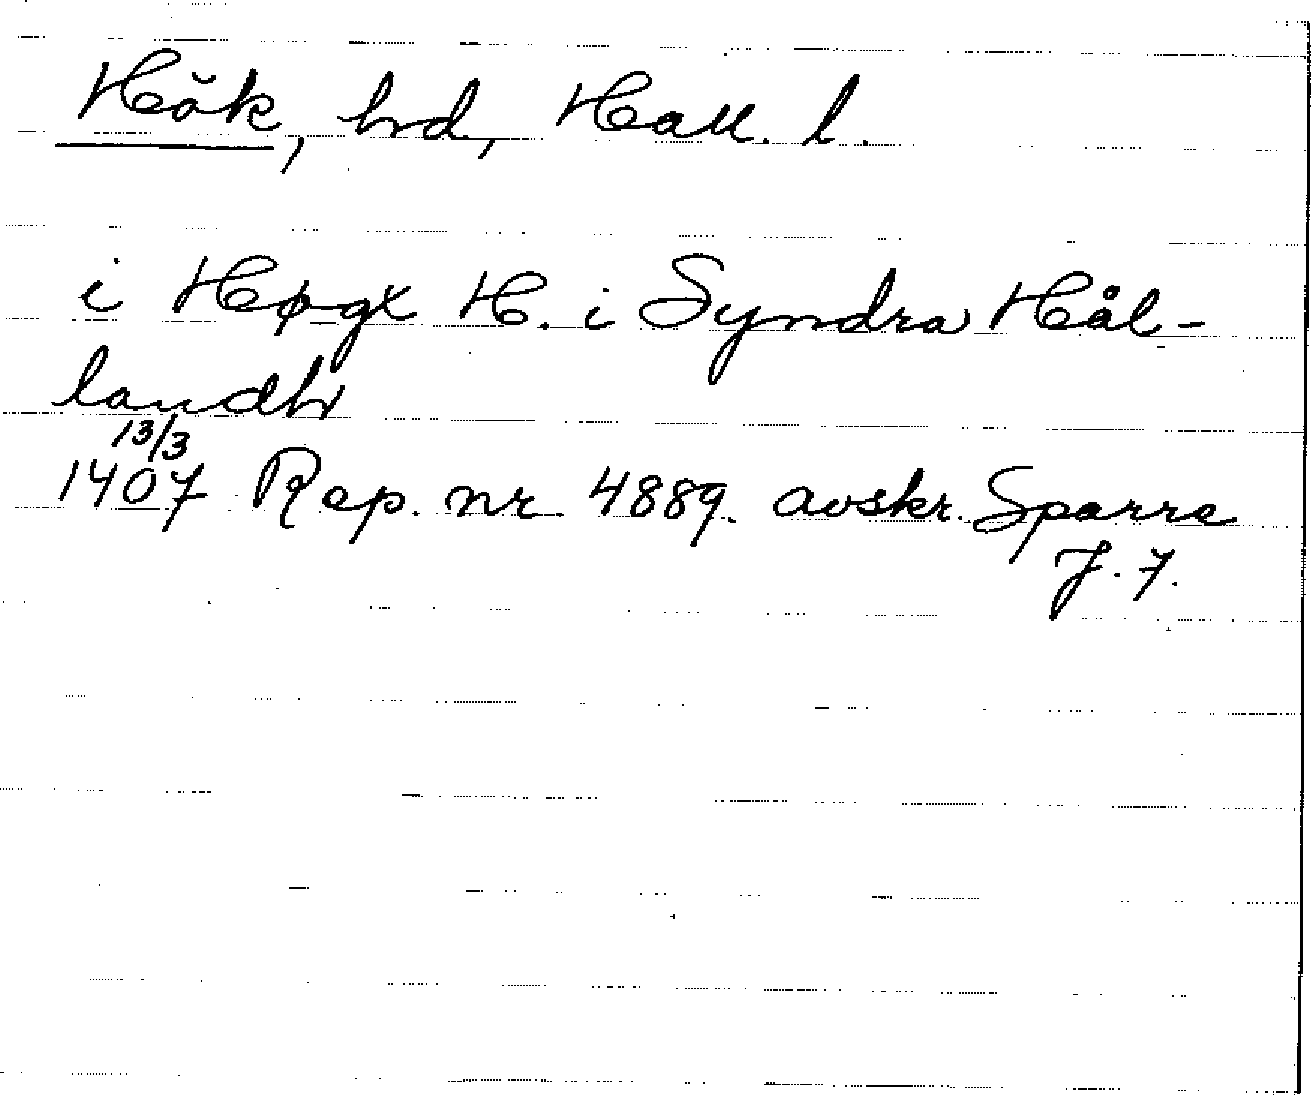 Hök, hrd, Hall. l.
i Høgx H. i Syndra Hål-
landh
13/3
1407 Rep. nr 4889. avskr. Sparre
J. 7.